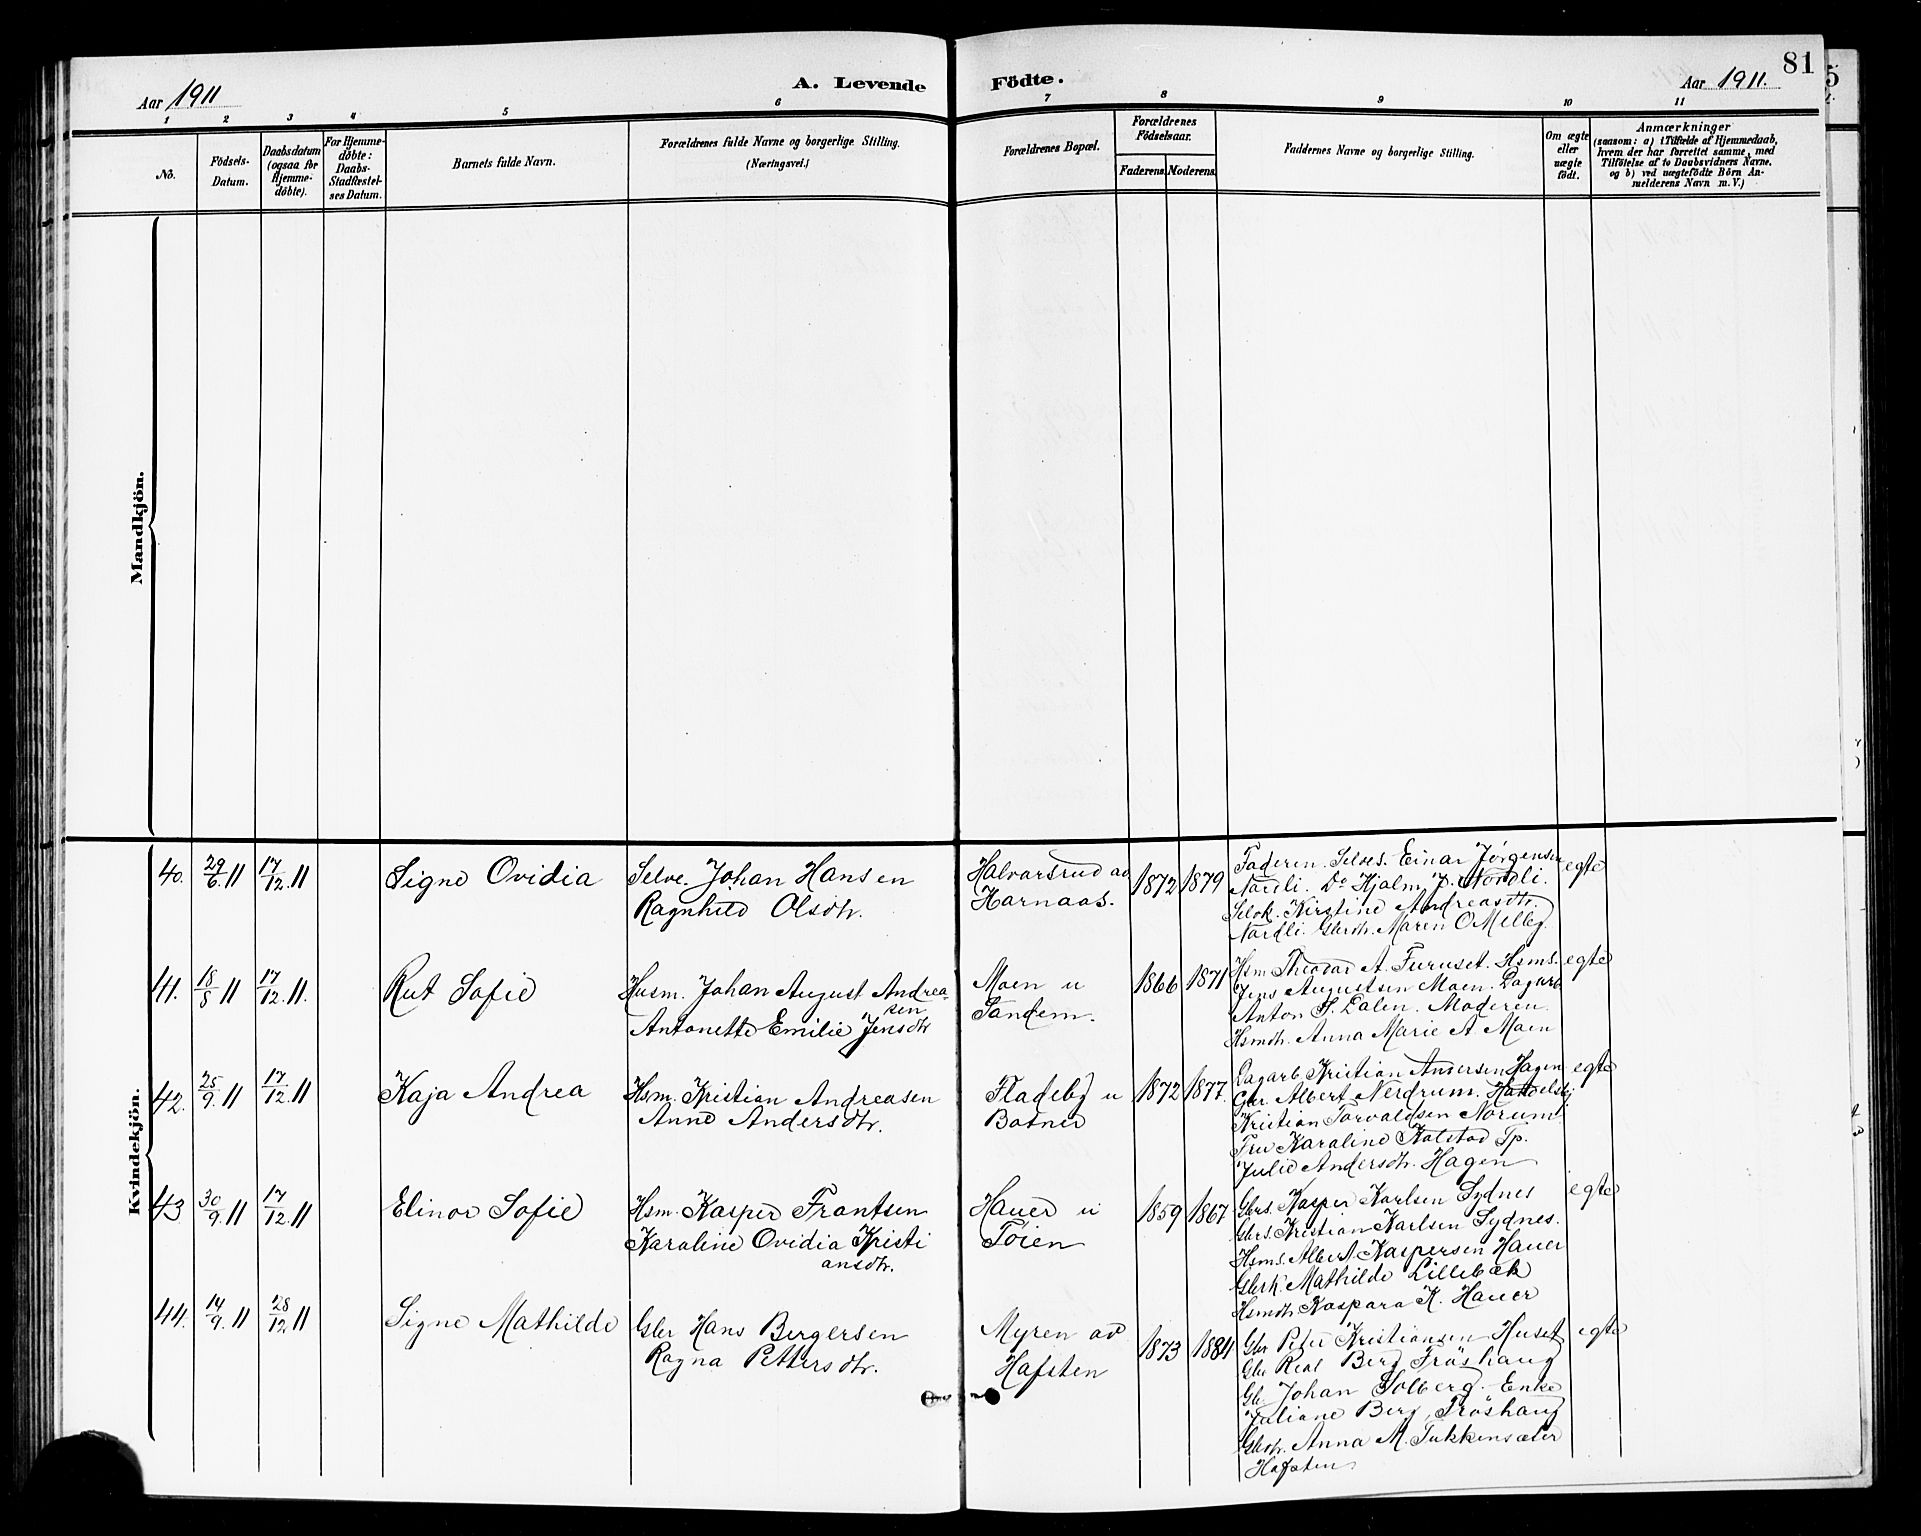 81
Aar 1911
A. Levende Födte.
Aar 1911.
1 2 3 4 5 6 7 8 9 10 11
No.
Födsels-
Datum.
Daabsdatum
(ogsaa for
Hjemme-
döbte).
For Hjemme-
döbte:
Daabs-
Stadfæstel-
ses Datum.
Barnets fulde Navn.
Forældrenes fulde Navne og borgerlige Stilling.
(Næringsvei.)
Forældrenes Bopæl.
Forældrenes
Födselsaar.
Faderens. Moderens.
Faddernes Navne og borgerlige Stilling.
Om ægte
eller
uægte
födt.
Anmærkninger
(saasom: a) i Tilfælde af Hjemmedaab,
hvem der har forrettet samme, med
Tilföielse af to Daabsvidners Navne,
og b) ved uægtefödte Börn An-
melderens Navn m. V.)
Mandkjön.
Kvindekjön.
40. 29/6. 11 17/12. 11 Signe Ovidia
Selve. Johan Hansen
Ragnhild Olsdtr.
Halvarsrud av
Harnaas.
1872 1879
Faderen. Selves. Einar Jørgensen
Nordli. Do Hjalm. J. Nordli.
Selvk. Kirstine Andreasdtr.
Nordli. Gbrdtr. Maren O Melleg.
egte
41. 18/8 11 17/12. 11. Rut Sofie
Husm. Johan August Andrea-
sen
Antonette Emilie Jensdtr
Moen u
Sandem.
1866 1871
Hsm Theodor A. Furuset. Hsms.
Jens Augustsen Moen. Dagarb
Anton S. Dalen. Moderen.
Hsmdtr. Anna Marie A. Moen
egte
42. 25/9. 11 17/12. 11 Kaja Andrea
Hsm. Kristian Andreasen
Anne Andersdtr.
Fladeby u
Botner
1872 1877.
Dagarb Kristian Andersen Hagen
Gbr. Albert Nerdrum. Handelsbj
Kristian Torvaldsen Norum
Fru Karaline Kolstad Tp.
Julie Andersdtr. Hagen
egte
43 30/9. 11 17/12. 11 Elinor Sofie
Hsm. Kasper Frantsen
Karaline Ovidia Kristi
ansdtr.
Hauer u
Tøien
1859 1867
Gbrs. Kasper Karlsen Sydnes
Gbrs. Kristian Karlsen Sydnes.
Hsms. Albert Kaspersen Hauer
Gbrk. Mathilde Lillebæk
Hsmdtr. Kaspara K. Hauer
egte
44. 14/9. 11 28/12 11 Signe Mathilde
Gbr Hans Bergersen
Ragna Pettersdtr.
Myren av
Hafsten
1873 1884
Gbr Peter Kristiansen Huset
Gbr Real Berg Frøshaug
Gbr Johan Solberg. Enke
Juliane Berg, Frøshaug
Gbrdtr. Anna M. Tukkensæter
Hafsten
egte